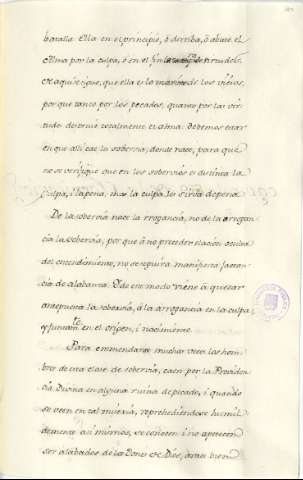 batalla. Ella en el principio, ò derriba, ò abate el
Alma por la culpa, ò en el fin
de aqui se sigue, que ella es la de los vicios,
por que tanto por los pecados, quanto por las vir-
tudes destruie totalmente el alma. debemos estar
en que alli cae la soberbia, donde nace, para que
no se verifique que en los soberbios es distinta la
culpa, i la pena, mas la culpa les sirva de pena.
De la soberbia nace la arrogancia, no de la arrogan
cia la soberbia, por que à no preceder elacion oculta
del entendimiento, no se seguira manifiesta jactan
cia de alabanza. I de este modo viene à quedar
antepuesta la soberbia, à la arrogancia en la culpa
en el origen, i nacimiento.
Para emmendarse muchas veces los hom
bres de esta clase de soberbia, caen por la Providen
cia Divina en alguna ruina de pecado, i quando
se veen en tal miseria, reprehendiendose humil
demente asi mismos, se conocen i no apetecen
ser alabados de los Dones de Dios, antes bien